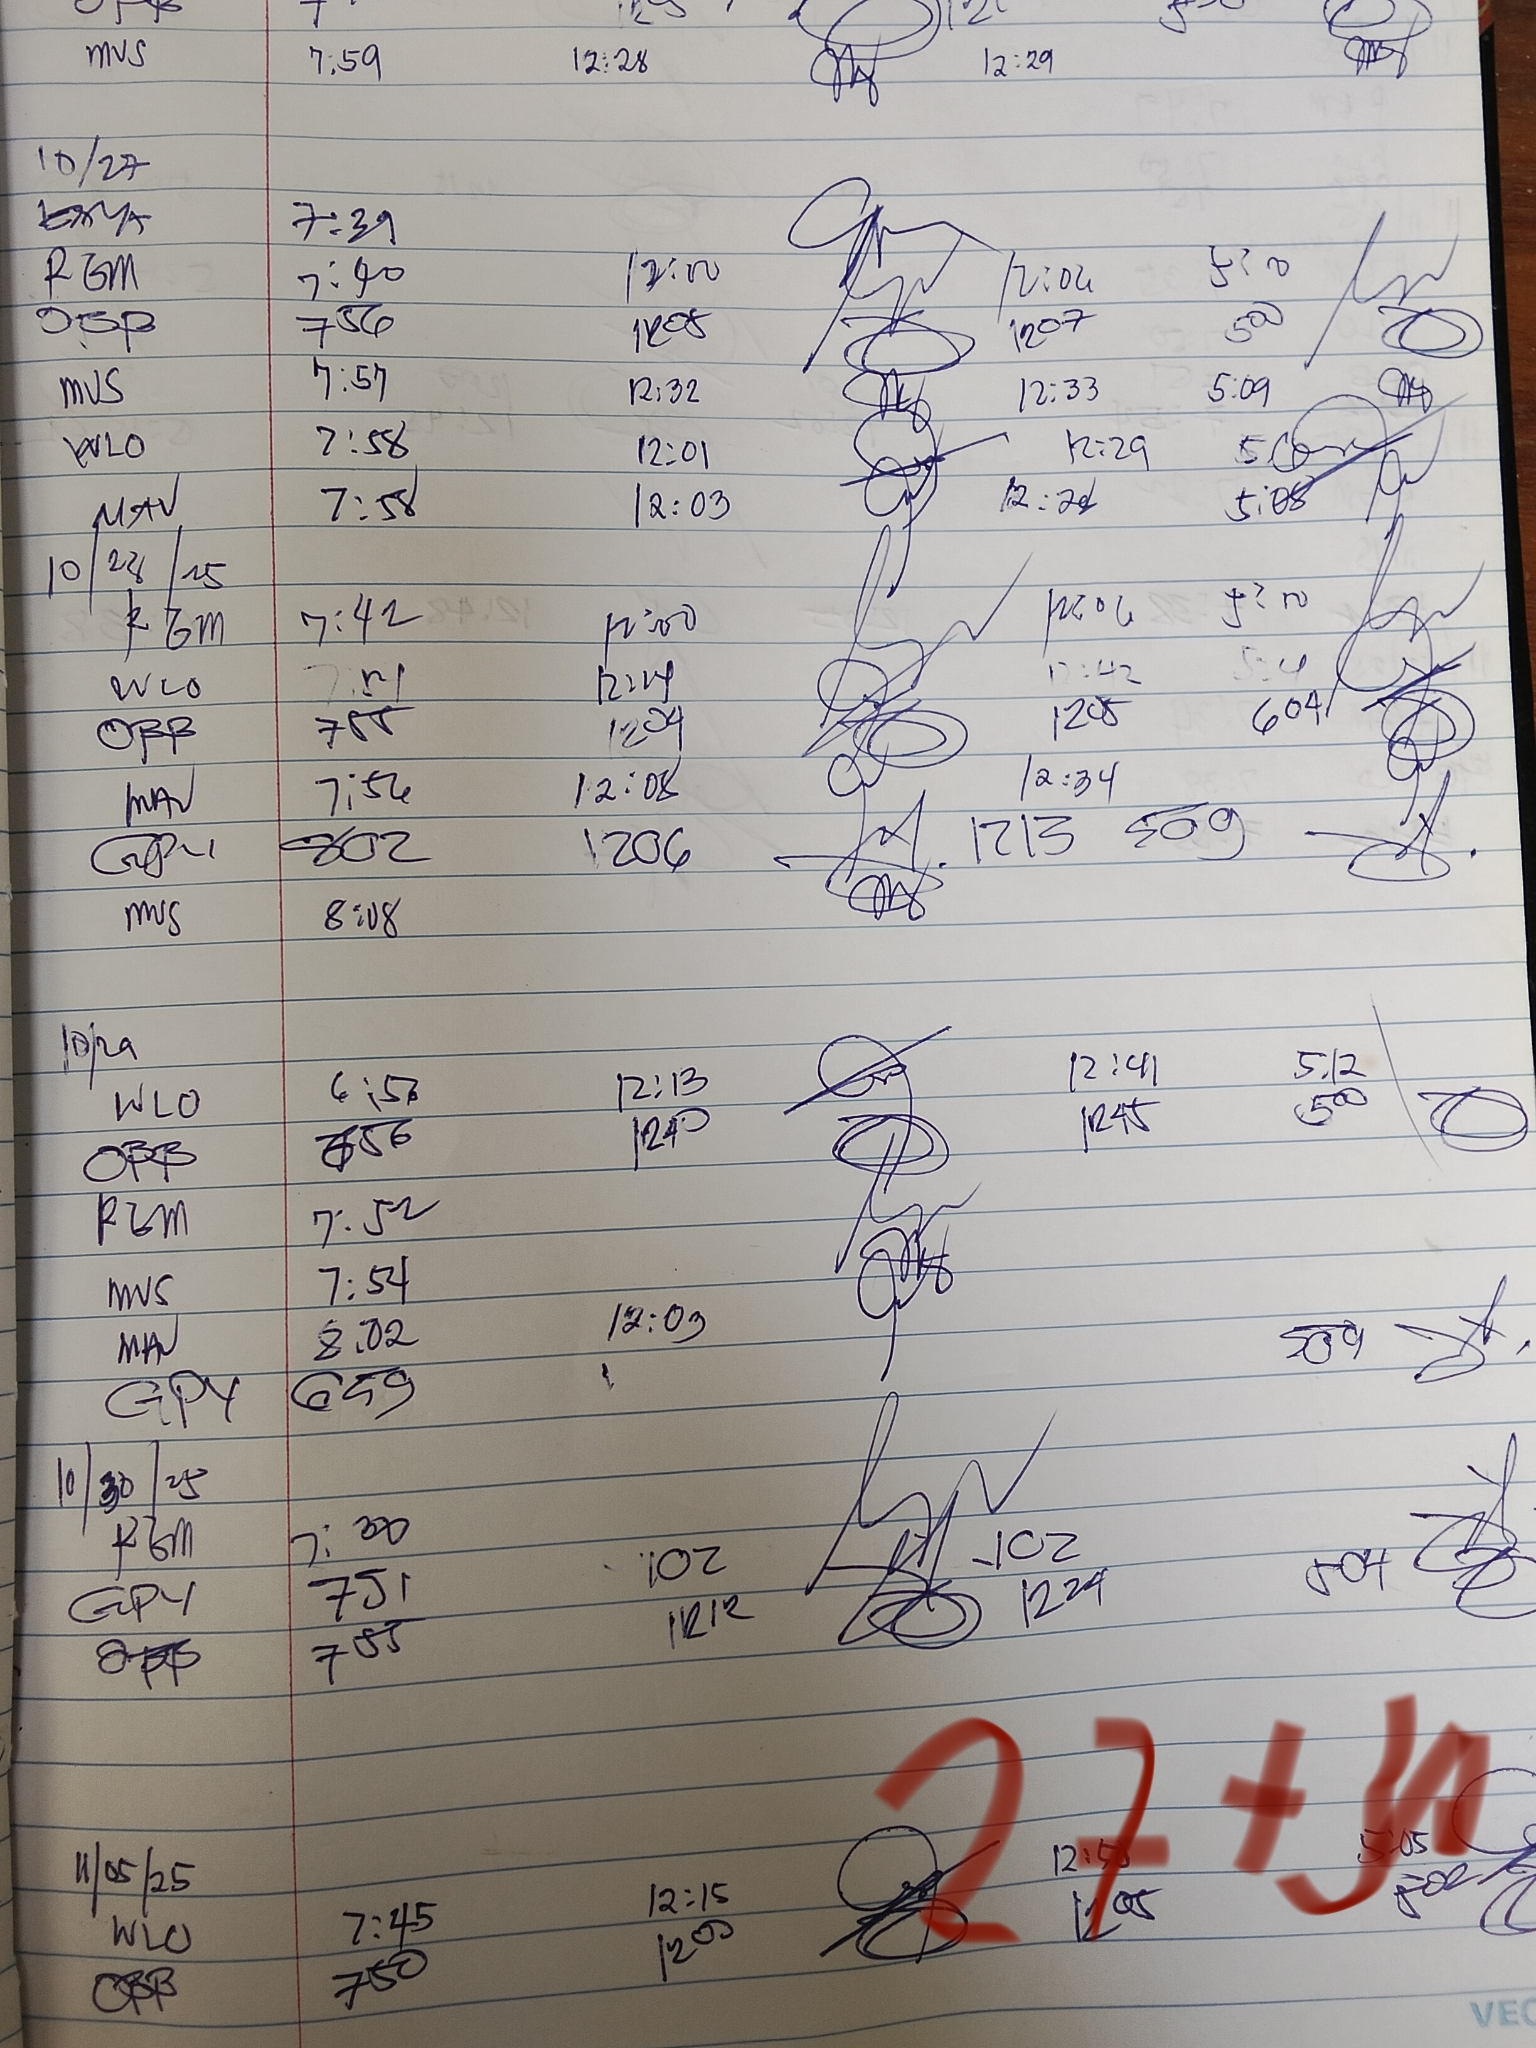 MVS 7:59 12:28 12:29
10/27
7:39
RGM 7:40 12:00 12:06 5:00
OBB 756 1205 1207 500
MVS 7:57 12:32 12:33 5:09
WLO 7:58 12:01 12:29
MAV 7:58 12:03 5:08
10/28/25
RGM 7:42 12:00 12:06 5:00
WLO 7:51
OBB 755 1204 1205 604
MAV 7:56 12:08 12:34
GPY 802 1206 1213 509
MVS 8:08
10/29
WLO 12:13 12:41 5:12
OBB 656 1240 1245 500
RGM 7:52
MVS 7:54
MAV 8:02 12:03
GPY 659 509
10/30/25
RGM
GPY 751 102 102
OBB 755 1212 1224 504
27+
11/05/25
WLO 7:45 12:15 5:05
OBB 750 1200 1205 502
VEC